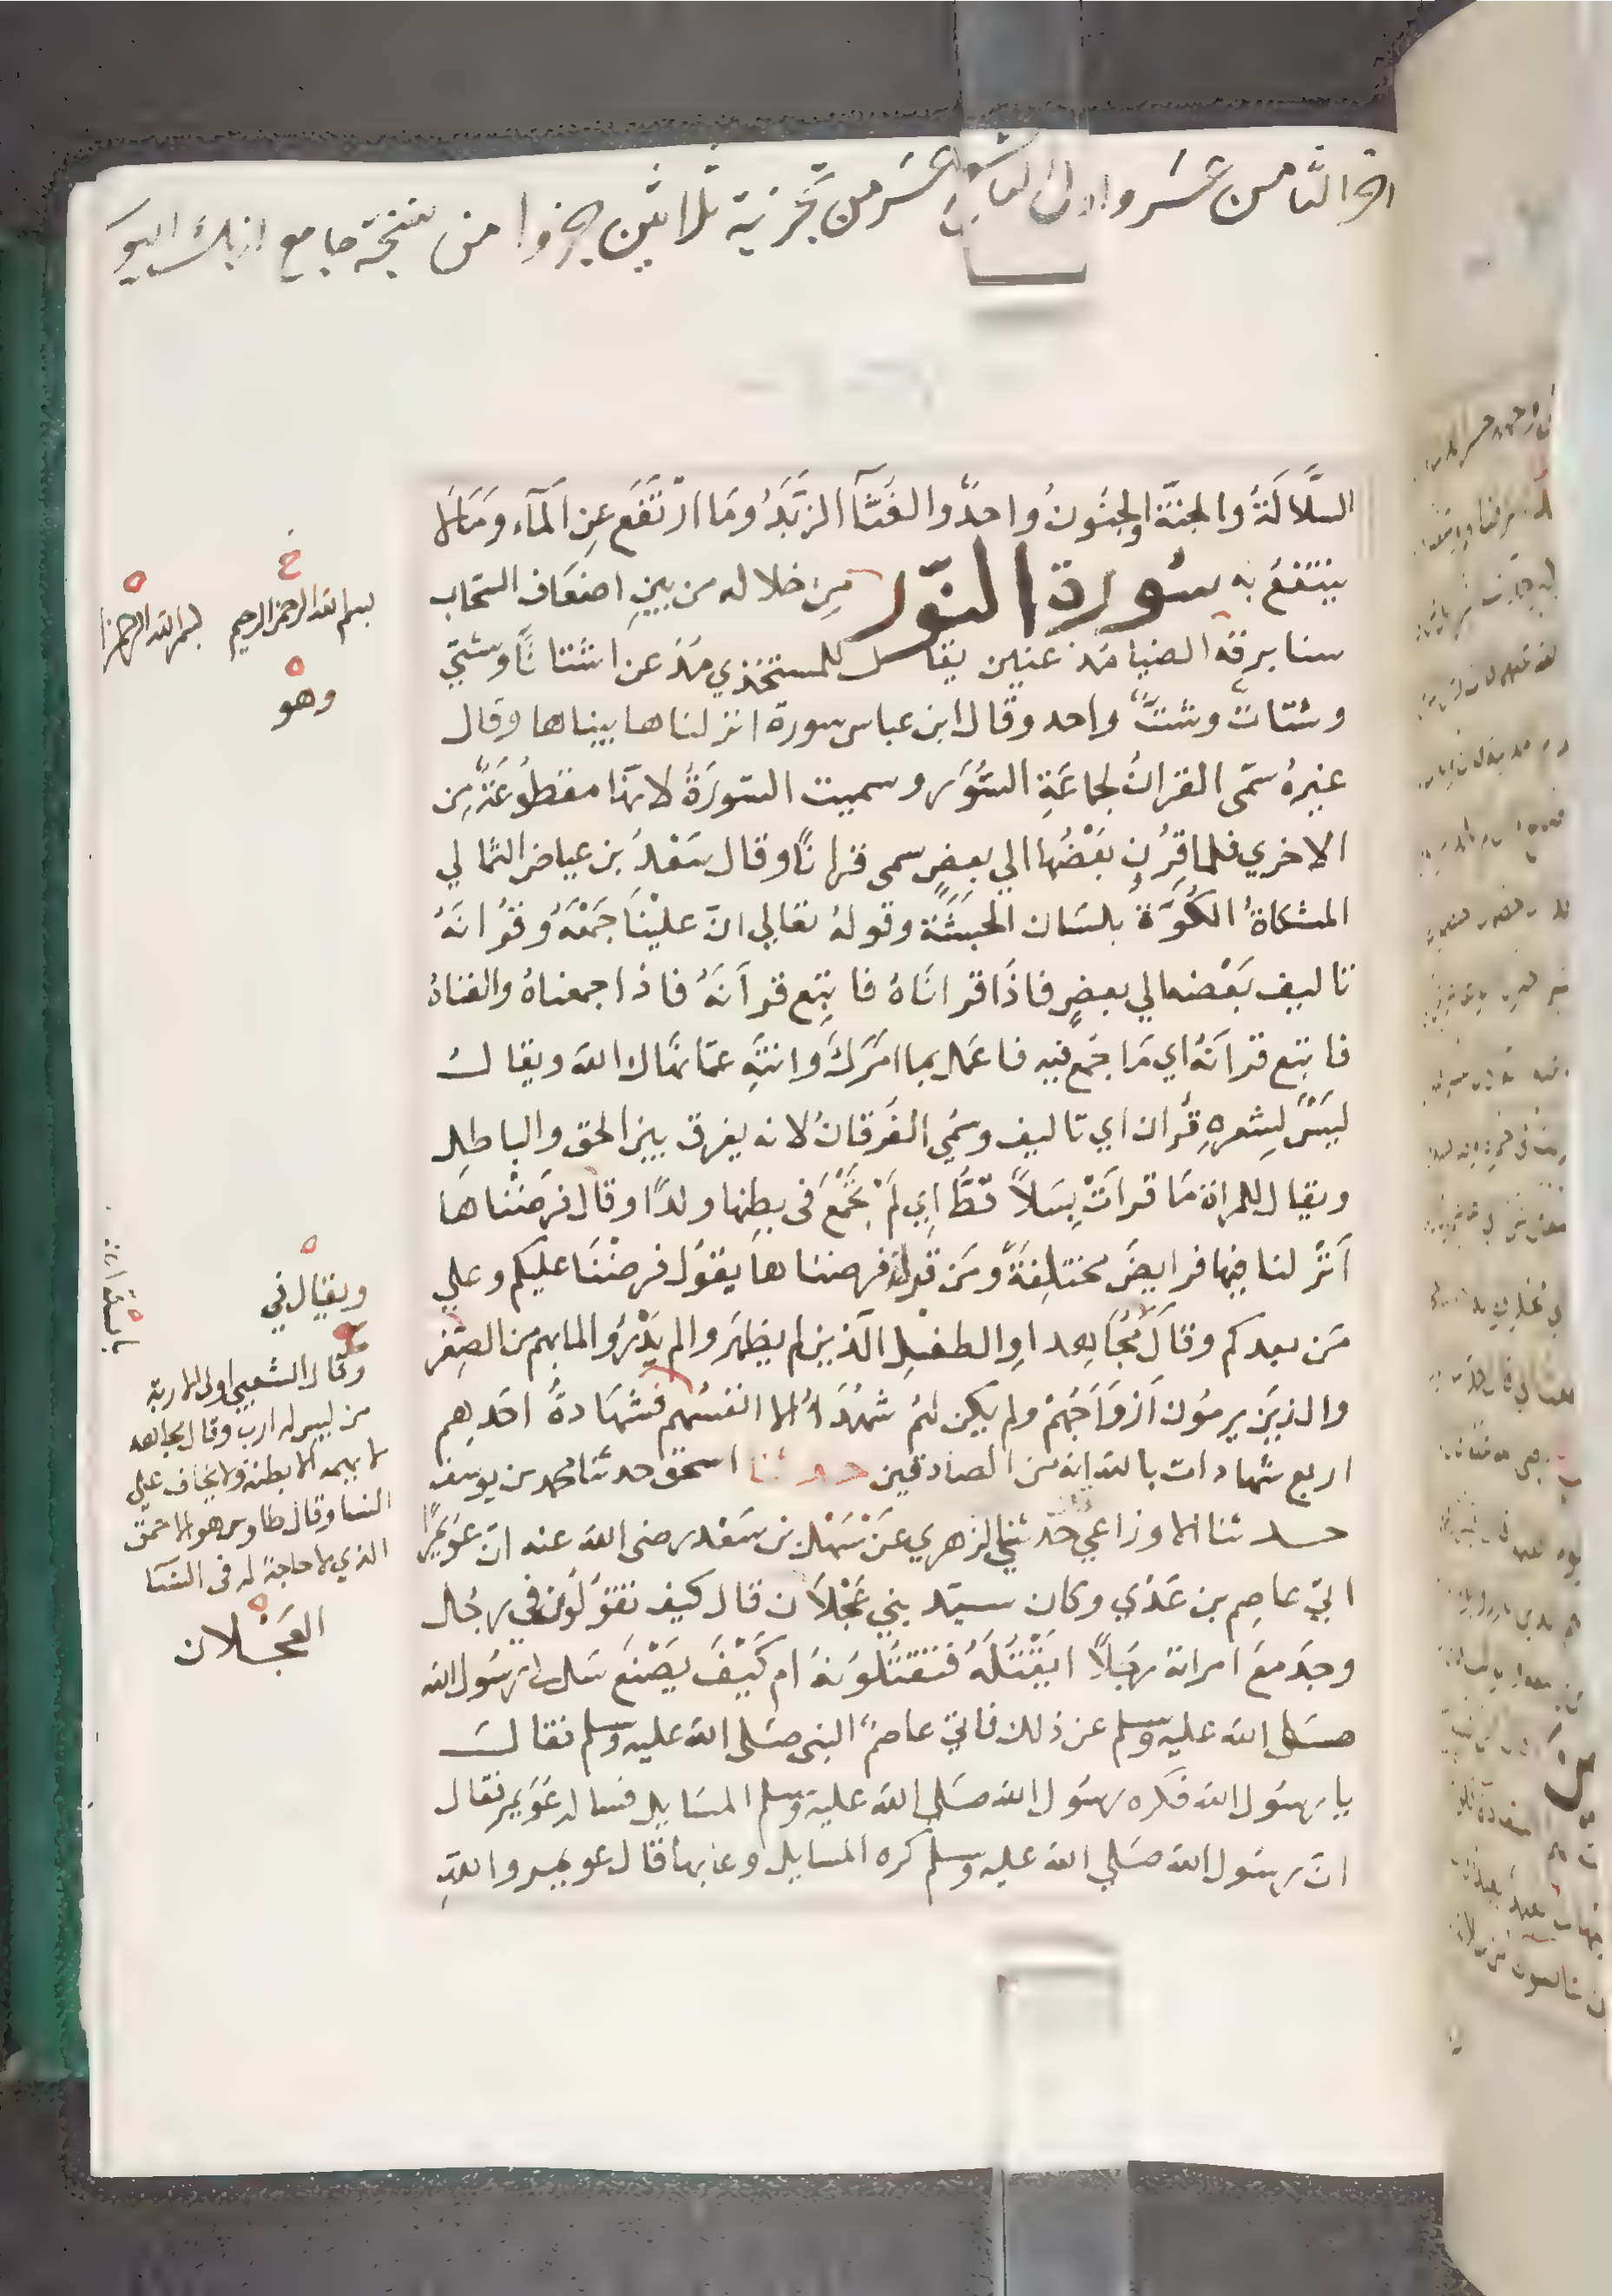 اخر الثامن عشر واول التاسع عشر من تجزئة ثلاثين جزوا من نسخة جامع ازبك اليو
السُّلَالَةُ والجِنّة والجُنُونُ واحدٌ والغُثَآءُ الزَبَدُ وَمَا ارْتَفَعَ عنِ المَآءِ وَمَا لا
ينتفعُ به سُورة النّور مِن خلاله من بينِ اضعَاف السّحاب
سنا برقه الضياء مذعنين يقال للمستخذي مذعن اشتاتًا وشتّي
وشتاتٌ وشتٌّ واحد وقال ابن عباس سورة انزلناها بيناها وقال
غيرهُ سمّى القرانُ لجماعَةِ السُّوَر وسميت السّورَةُ لانها مقطوعَةٌ من
الاخري فلما قُرِن بَعْضُها الي بعضٍ سمى قرانًا وقال سَعْدُ بن عياض الثمالي
المشكاةُ الكُوَّةُ بلسَان الحَبَشَةِ وقولهُ تعالي انّ علَيْنَا جَمْعَهُ وقُرانَهُ
تاليف بَعْضه الي بعضٍ فاذَا قرانَاهُ فاتبِع قرآنَهُ فاذا جمعناهُ والفناهُ
فاتبع قرآنَهُ اي مَا جُمع فيه فاعمل بما امَرَكَ وانتَهِ عمّا نهاك الله ويقالُ
ليَسَ لِشعرهِ قُران اي تاليف وسُمّي الفُرقانُ لانه يفرق بين الحق والباطِل
ويقال للمراة مَا قراَتْ بِسَلاً قطُّ اي لَمْ تَجْمَع في بطنِها ولدًا وقال فرّضْناهَا
اَنْزلنا فيها فرايضَ مختلِفَةً وَمَن قرا فرضناها يقوُل فرضْنَا عليكم وعلي
مَن بعدكم وقالَ مُجَاهِد اوِ الطفلِ الّذين لم يظهَروا لم يَدْرُوا لما بهم من الصِغر
والذِينَ يرمُون اَزْوَاجَهُمْ ولم يكن لهُم شُهَدَاءُ الا انفسُهم فشَهَادةُ احَدِهِم
اربع شهادات بالله انه لمن الصادقين حدثنا اسحق حدثنا محمد بن يوسف
حدثنا الاوزاعيُّ حَدّثني الزهري عَنْ سَهْل بن سَعْد رضى الله عنه انّ عوَيمِرًا
اتي عاصِم بن عَدِي وكان سيّد بني عَجْلاَن قال كيف تقوُلُون في رجُل
وجَدَ مَعَ امراته رَجُلاً ايَقْتُلَهُ فتَقتُلُونهُ ام كَيْفَ يَصْنَع سَل لى رسُول الله
صَلى الله عليه وسلم عن ذلك فاتي عاصمٌ النبى صَلى الله عليه وسلم فقالَ
يا رسُول الله فكره رسُول الله صَلي الله عليه وسلم المسَايل فساله عُوَيمر فقال
انّ رسُول الله صَلي الله عليه وسلم كره المسايل وعابها قال عويمر واللهِ
بسم الله الرحمن الرحيم
بسم الله الرحمن
وهو
ويقال في
وقال الشعبي اولى الاربة
من ليس له ارب وقال مجاهد
لا يهمه الا بطنه ولا يخاف علي
النسا وقال طاوس هو الاحمق
الذي لا حاجة له فى النسا
العَجْلان